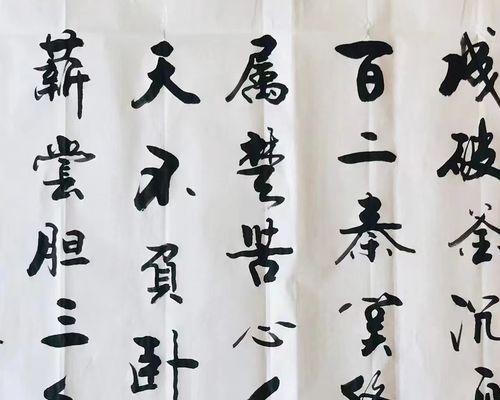 成破釜沉
百二秦关终
属楚苦心
天不負卧
薪尝胆三